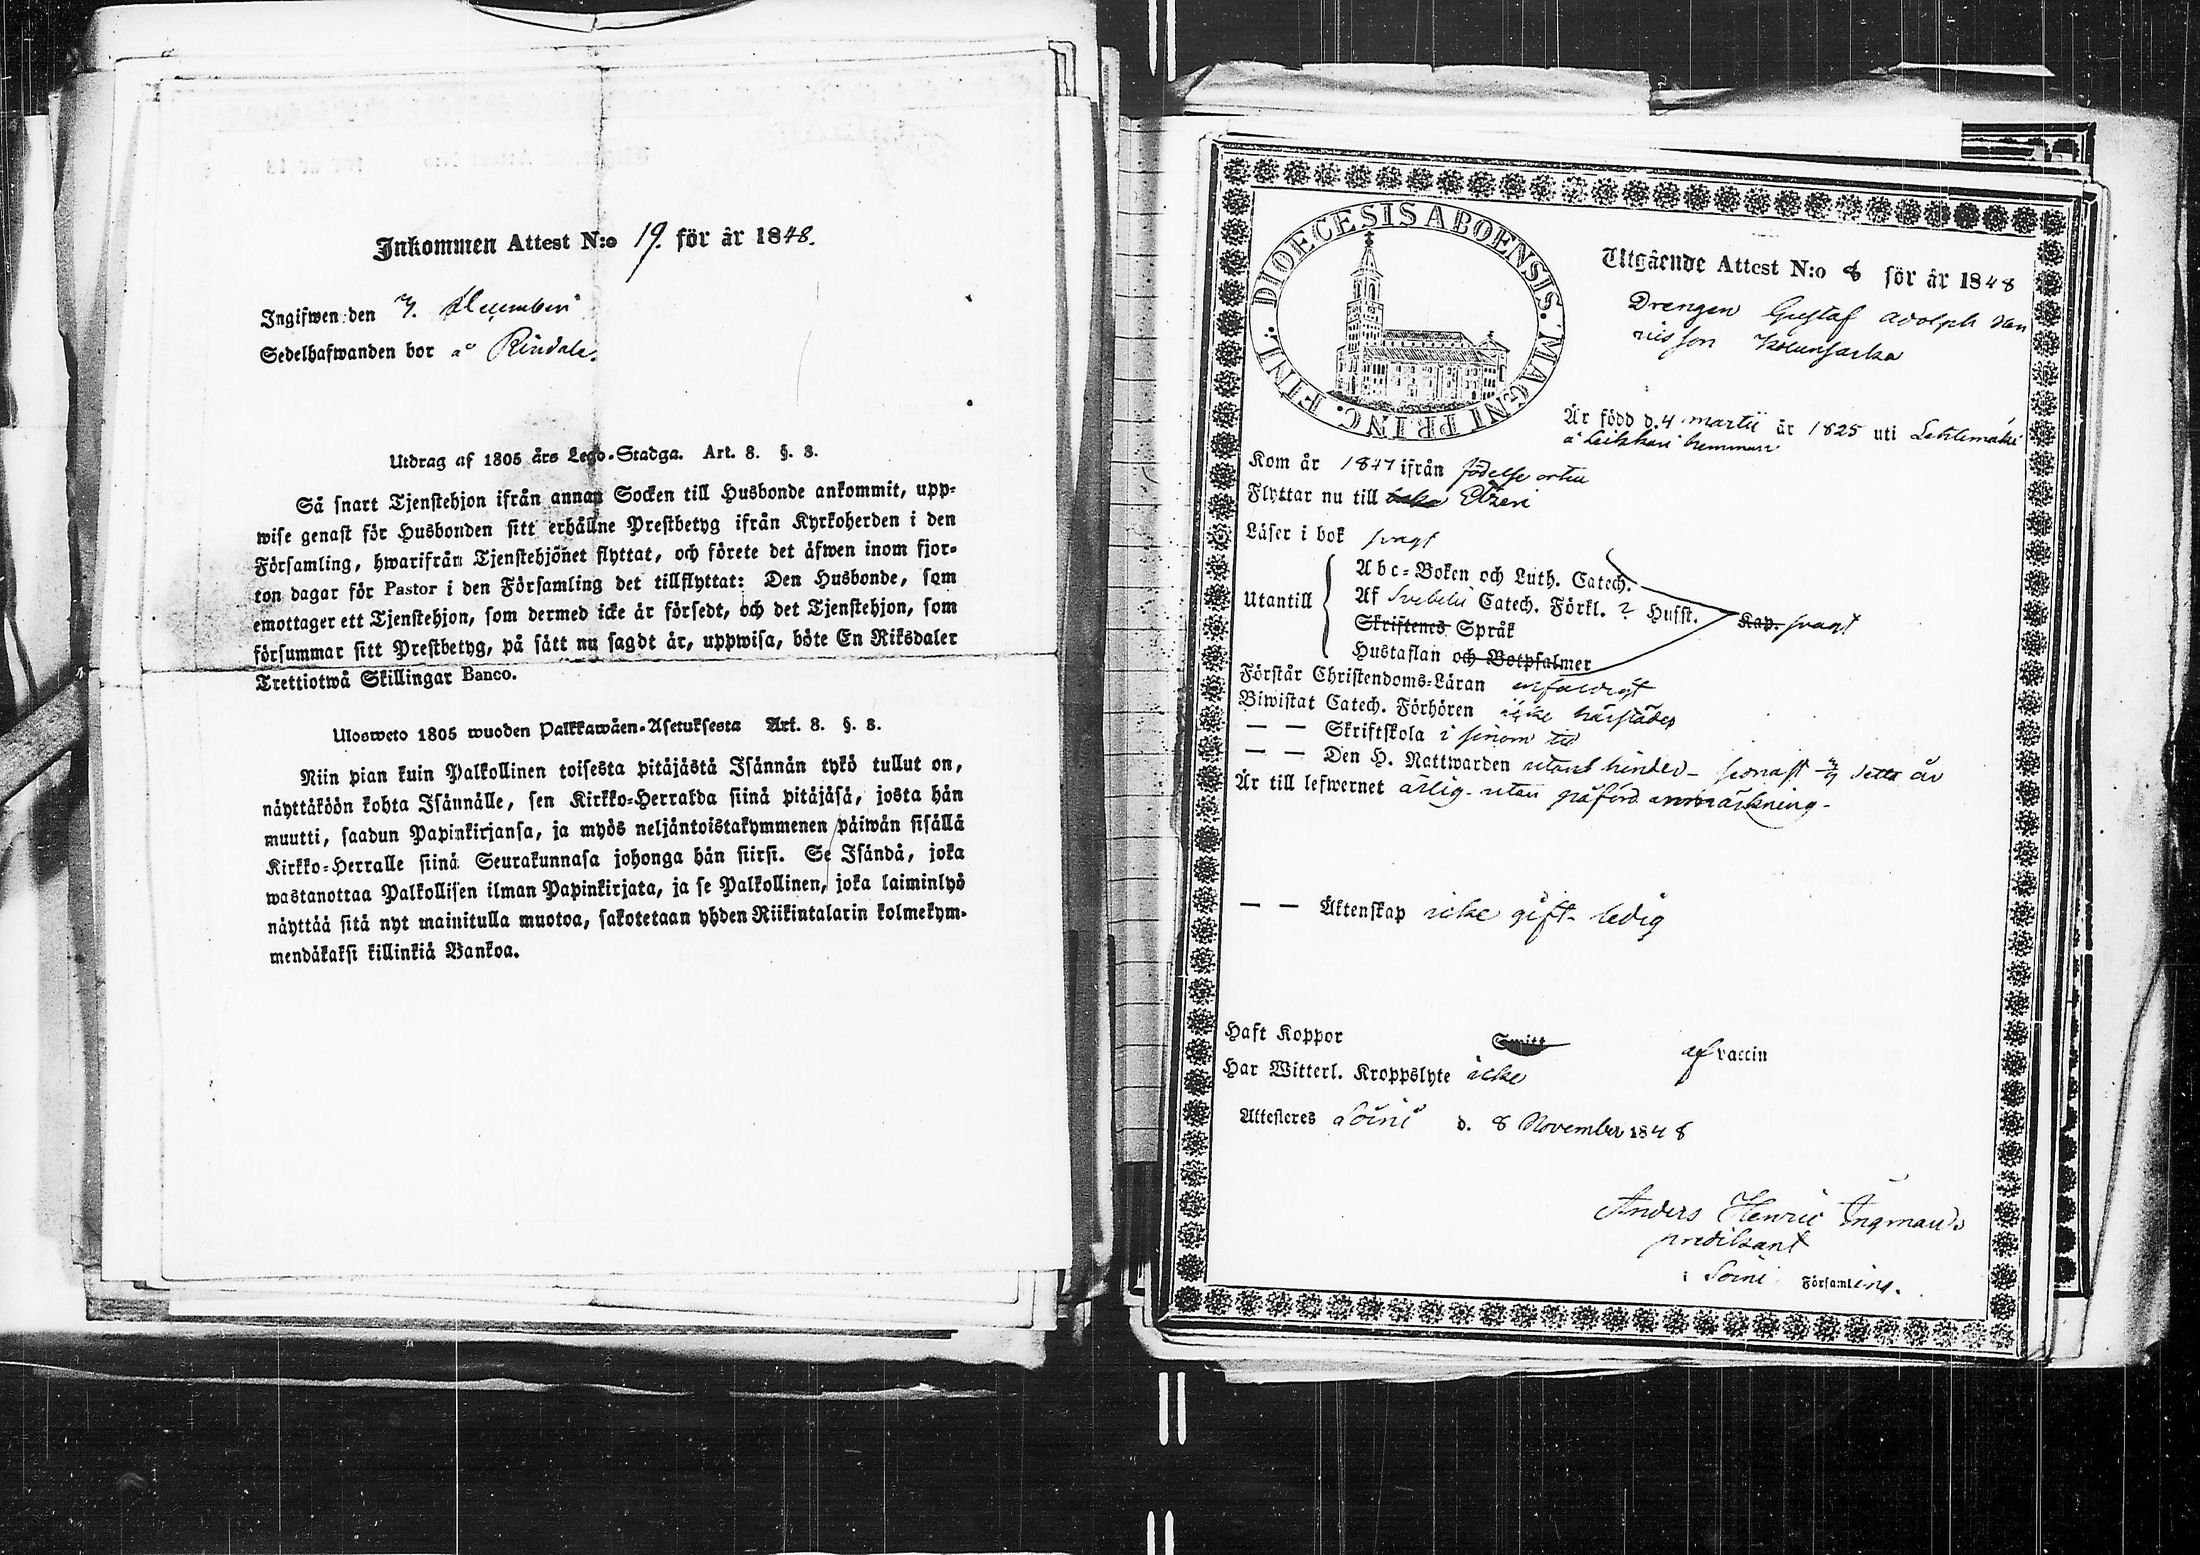 Inkommen Attest N:o 19. för år 1848.
Ingifwen den December
Sedelhafwanden bor å Rindala.
Utdrag af 1805 års Lego-Stadga. Art. 8. §. 8.
Så snart Tjenstehjon ifrån annan Socken till Husbonde ankommit, upp-
wise genast för Husbonden sitt erhållne Prestbetyg ifrån Kyrkoherden i den
Församling, hwarifrån Tjenstehjonet flyttat, och förete det äfwen inom fjor-
ton dagar för Pastor i den Församling det tillflyttat: Den Husbonde, som
emottager ett Tjenstehjon, som dermed icke är försedt, och det Tjenstehjon, som
försummar sitt Prestbetyg, på sätt nu sagdt är, uppwisa, böte En Riksdaler
Trettiotwå Skillingar Banco.
Ulosweto 1805 wuoden Palkkawäen-Asetuksesta Art. 8. §. 8.
Niin pian kuin Palkollinen toisesta pitäjästä Isännän tykö tullut on,
näyttäköön kohta Isännälle, sen Kirkko-Herralda siinä pitäjäsä, josta hän
muutti, saadun Papinkirjansa, ja myös neljäntoistakymmenen päiwän sisällä
Kirkko-Herralle siinä Seurakunnasa johonga hän siirsi. Se Isändä, joka
wastanottaa Palkollisen ilman Papinkirjata, ja se Palkollinen, joka laiminlyö
näyttää sitä nyt mainitulla muotoa, sakotetaan yhden Riikintalarin kolmekym-
mendäkaksi killinkiä Bankoa.
DIOECESIS ABOENSIS. MAGNI PRINC. FINL.
Utgående Attest N:o 8 för år 1848
Drengen Gustaf Adolph
Är född d. 4 martii år 1825 uti Lehtimäki
å hemman
Kom år 1847 ifrån födelse orten
Flyttar nu till Etzeri
Läser i bok svagt
Utantill
Abc-Boken och Luth. Catech.
Af Svebelii Catech. Förkl. 2 Husst.
Skriftenes Språk
Kap. svagt
Hustaflan och Botpsalmer
Förstår Christendoms-Läran enfaldigt
Biwistat Catech. Förhören icke härstädes
— — Skriftskola i sinom tid
— — Den H. Nattwarden utan hinder - senast detta år
Är till lefwernet ärlig - utan påförd anmärkning -
— — Äktenskap icke gift - ledig
Haft Koppor Smitt af vaccin
Har Witterl. Kroppslyte icke
Attesteres Soini d. 8 November 1848
Anders Henric Ingman
predikant
i Soini Församling.